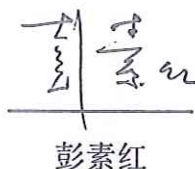 彭素红
彭素红